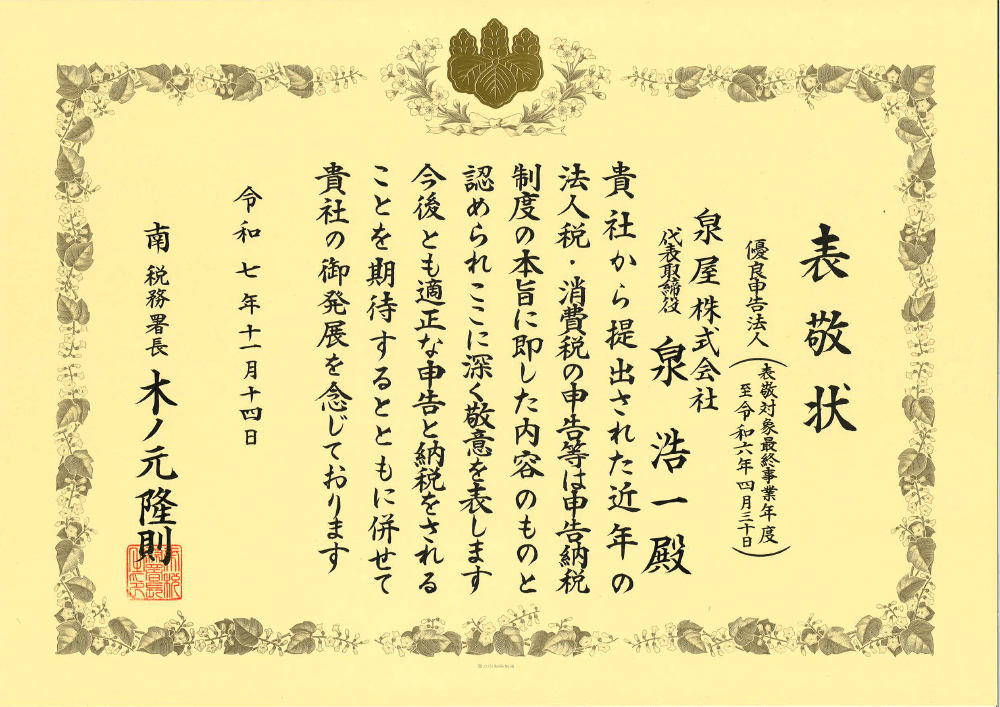 表敬状
優良申告法人
(表敬対象最終事業年度
至令和六年四月三十日)
泉屋株式会社
代表取締役
泉 浩一殿
貴社から提出された近年の
法人税・消費税の申告等は申告納税
制度の本旨に即した内容のものと
認められここに深く敬意を表します
今後とも適正な申告と納税をされる
ことを期待するとともに併せて
貴社の御発展を念じております
令和七年十一月十四日
南税務署長 木ノ元隆則